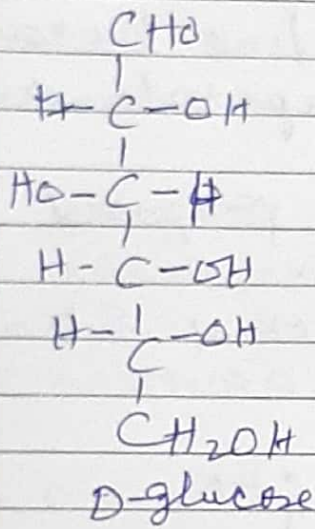 CHO
H-C-OH
HO-C-H
H-C-OH
H-C-OH
CH2OH
D-glucose